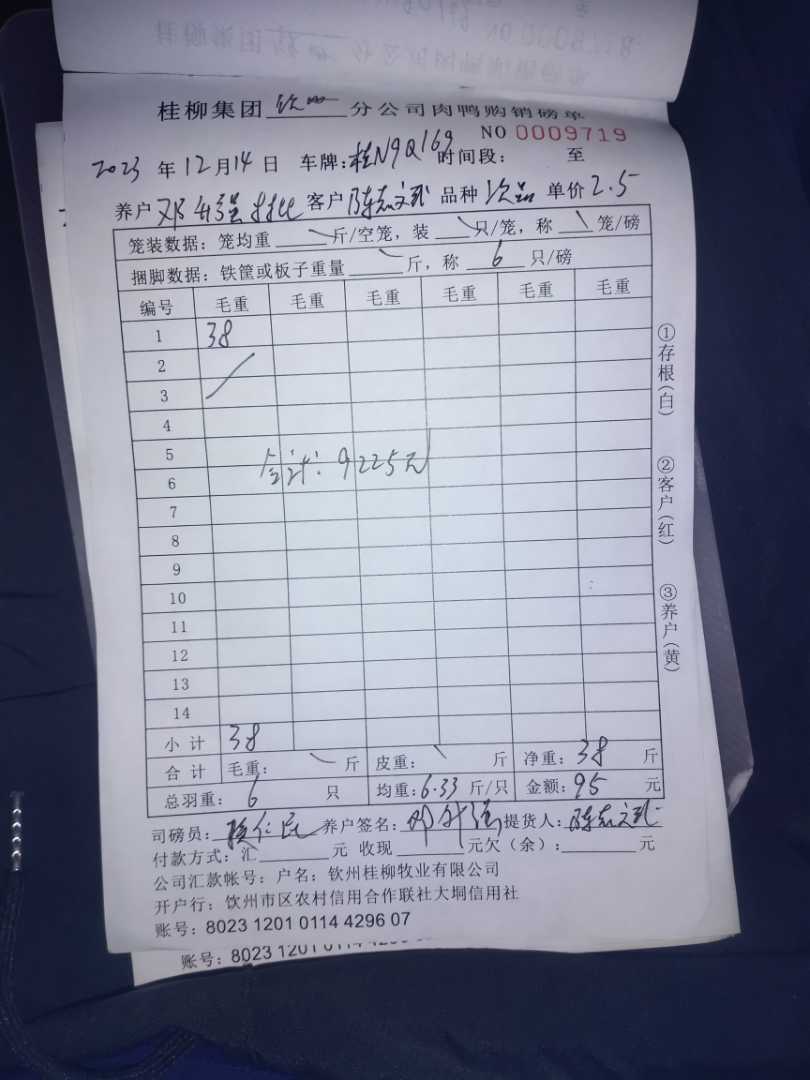 桂柳集团 钦州 分公司肉鸭购销磅单
NO 0009719
2023 年 12 月 14 日 车牌：桂N9Q169 时间段： 至
养户 邓 强 客户 陈志文 品种 次品 单价 2.5
笼装数据：笼均重 斤/空笼，装 只/笼，称 笼/磅
捆脚数据：铁筐或板子重量 斤，称 6 只/磅
编号 毛重 毛重 毛重 毛重 毛重 毛重
1 38
2
3
4
5
合计：9225元
6
7
8
9
10
11
12
13
14
小计 38
合计 毛重： 斤 皮重： 斤 净重：38 斤
总羽重：6 只 均重：6.33 斤/只 金额：95 元
司磅员： 养户签名：邓 强 提货人：陈志文
付款方式：汇 元 收现 元欠（余）： 元
公司汇款帐号：户名：钦州桂柳牧业有限公司
开户行：钦州市区农村信用合作联社大垌信用社
账号：8023 1201 0114 4296 07
账号：8023 1201 0114
①存根（白）
②客户（红）
③养户（黄）